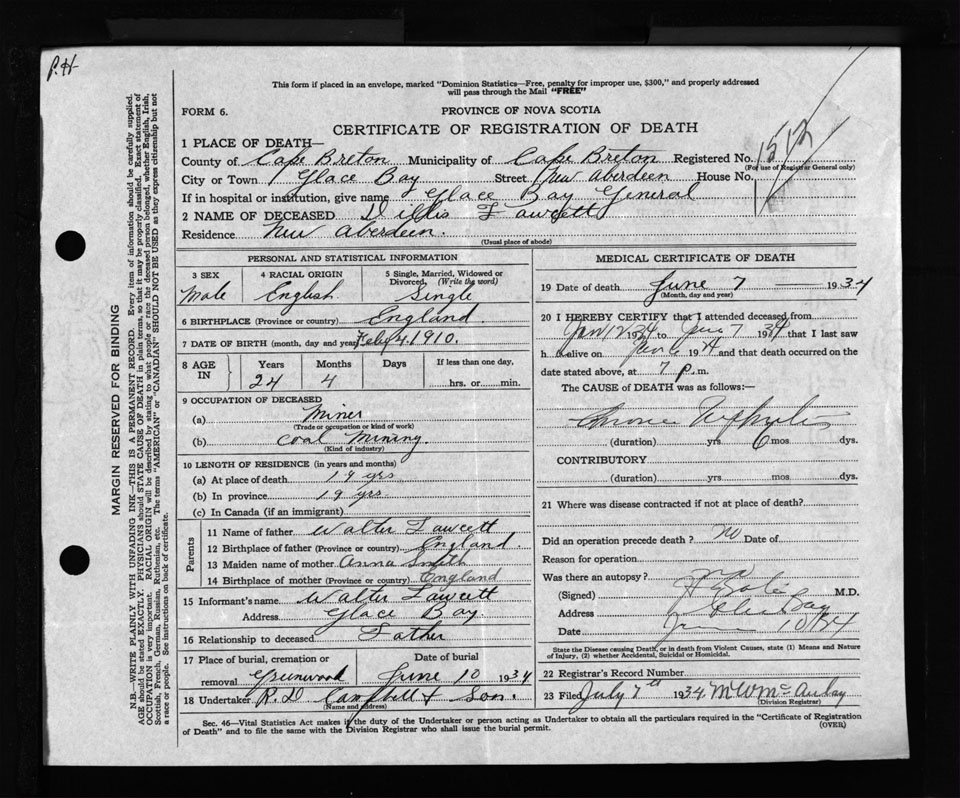 P.H.
This form if placed in an envelope, marked "Dominion Statistics—Free, penalty for improper use, $300," and properly addressed
will pass through the Mail "FREE"
FORM 6.
PROVINCE OF NOVA SCOTIA
CERTIFICATE OF REGISTRATION OF DEATH
1 PLACE OF DEATH—
County of Cape Breton Municipality of Cape Breton Registered No.
(For use of Registrar General only)
City or Town Glace Bay Street New Aberdeen House No.
If in hospital or institution, give name Glace Bay General
2 NAME OF DECEASED Willis Fawcett
Residence New Aberdeen.
(Usual place of abode)
PERSONAL AND STATISTICAL INFORMATION
3 SEX 4 RACIAL ORIGIN 5 Single, Married, Widowed or
Divorced, (Write the word)
Male English Single
6 BIRTHPLACE (Province or country) England.
7 DATE OF BIRTH (month, day and year) Feby 4, 1910.
8 AGE IN Years Months Days If less than one day,
24 4 hrs. or min.
9 OCCUPATION OF DECEASED
(a) Miner
(Trade or occupation or kind of work)
(b) Coal Mining.
(Kind of industry)
10 LENGTH OF RESIDENCE (in years and months)
(a) At place of death 19 yrs
(b) In province 19 yrs
(c) In Canada (if an immigrant)
Parents
11 Name of father Walter Fawcett
12 Birthplace of father (Province or country) England.
13 Maiden name of mother Anna Smith
14 Birthplace of mother (Province or country) England
15 Informant's name Walter Fawcett
Address Glace Bay.
16 Relationship to deceased Father
17 Place of burial, cremation or Date of burial
removal Greenwood June 10 1934
18 Undertaker R.D. Campbell & Son.
(Name and address)
MEDICAL CERTIFICATE OF DEATH
19 Date of death June 7 1934
(Month, day and year)
20 I HEREBY CERTIFY that I attended deceased from
Jan 12 1934 to June 7 1934 that I last saw
h alive on June 6 1934 and that death occurred on the
date stated above, at 7 p.m.
The CAUSE of DEATH was as follows:—
Chronic Nephritis
(duration) yrs 6 mos dys.
CONTRIBUTORY
(duration) yrs mos dys.
21 Where was disease contracted if not at place of death?
Did an operation precede death? no Date of
Reason for operation
Was there an autopsy? no
(Signed) M.D.
Address Glace Bay
Date June 10/34
State the Disease causing Death, or in death from Violent Causes, state (1) Means and Nature
of Injury, (2) whether Accidental, Suicidal or Homicidal.
22 Registrar's Record Number
23 Filed July 7th 1934. M W McAulay
(Division Registrar)
Sec. 46—Vital Statistics Act makes it the duty of the Undertaker or person acting as Undertaker to obtain all the particulars required in the "Certificate of Registration
of Death" and to file the same with the Division Registrar who shall issue the burial permit.
(OVER)
MARGIN RESERVED FOR BINDING
N.B.—WRITE PLAINLY WITH UNFADING INK—THIS IS A PERMANENT RECORD. Every item of information should be carefully supplied.
AGE should be stated EXACTLY. PHYSICIANS should STATE CAUSE OF DEATH in plain terms, so that it may be properly classified. Exact statement of
OCCUPATION is very important. RACIAL ORIGIN will be described by stating to what people or race the deceased person belonged, whether English, Irish,
Scottish, French, German, Russian, Ruthenian, etc. The terms "AMERICAN" or "CANADIAN" SHOULD NOT BE USED as they express citizenship but not
a race or people. See instructions on back of certificate.